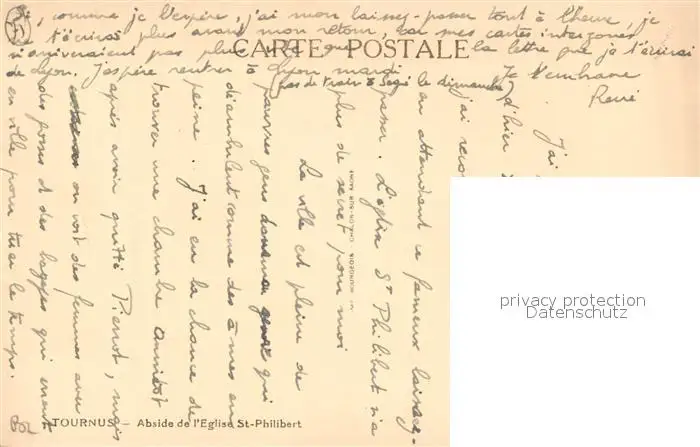 Si, comme je l'espère, j'ai mon laissez-passer tout à l'heure, je
t'écrirai plus avant mon retour, car mes cartes interzones
n'arriveraient pas plus que la lettre que je t'écrirai
de Lyon. J'espère rentrer à Lyon mardi Je t'embrasse
(pas de train à le dimanche) René
CARTE POSTALE
J'ai
d'hier
j'ai
en attendant ce fameux laissez-
passer. L'église St Philibert n'a
plus de secret pour moi
La ville est pleine de
pauvres gens qui
déambulent comme des âmes en
peine. J'ai eu la chance de
trouver une chambre aussitôt
après avoir quitté Pierrot, mais
on voit des femmes avec
des gosses et des bagages qui errent
en ville pour tuer le temps.
TOURNUS – Abside de l'Eglise St-Philibert
privacy protection
Datenschutz